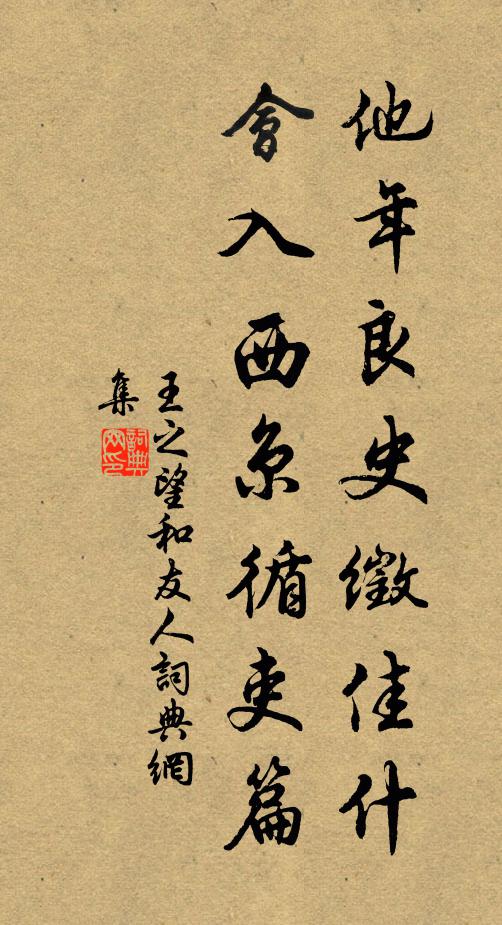 他年良史徵佳什
會入西京循吏篇
王之望和友人詞典網
集
詞典
网印